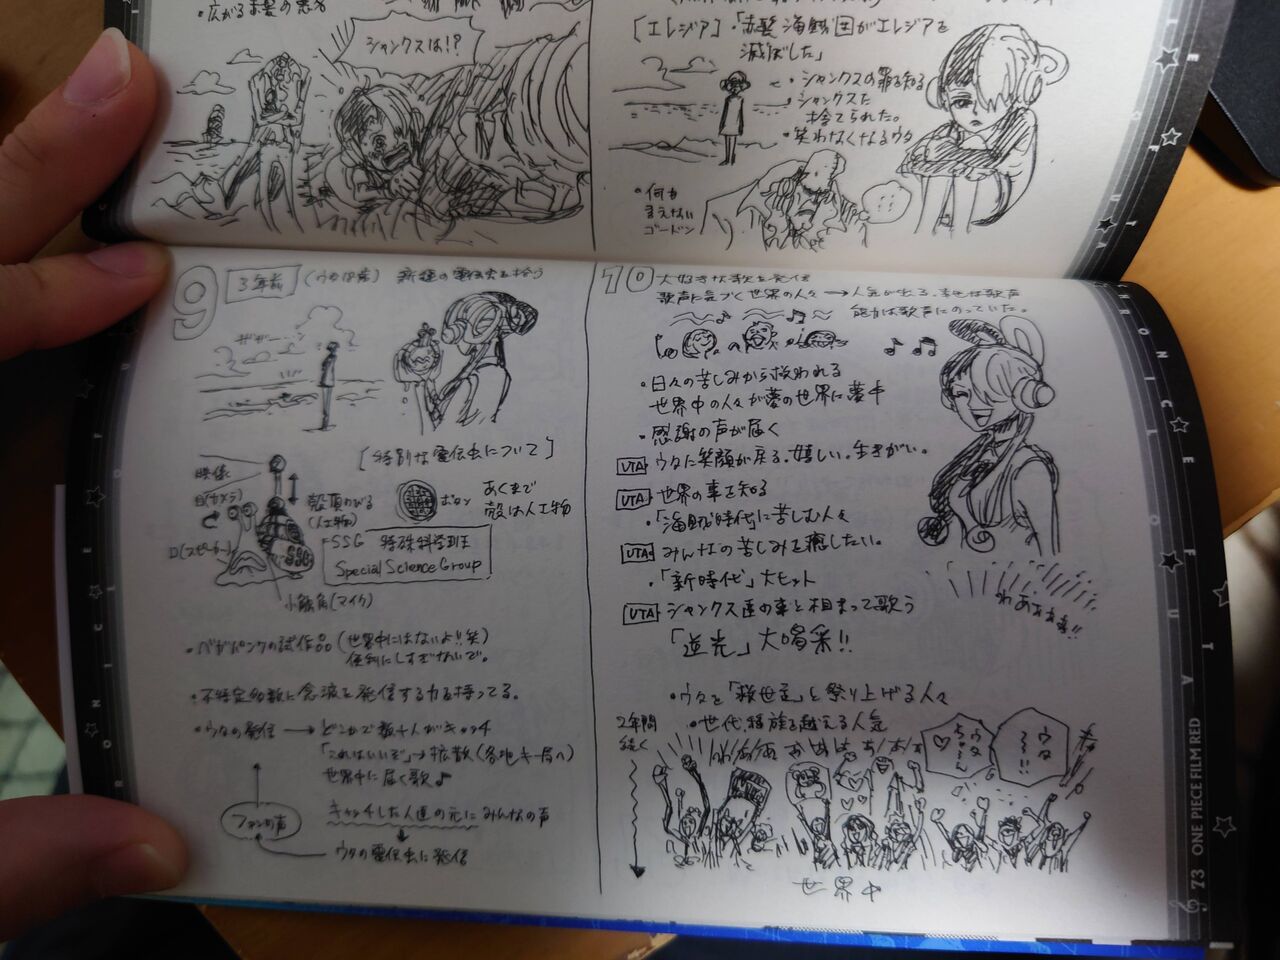 ・広がる赤髪の悪名
シャンクスは!?
[エレジア]・「赤髪海賊団がエレジアを
滅ぼした」
・シャンクスの罪を知る
・シャンクスに
捨てられた。
・笑わなくなるウタ
・何も
言えない
ゴードン
…
9
3年前
(ウタは 新種の電伝虫を拾う
ザザーー…
[特別な電伝虫について]
映像
目(カメラ)
殻頂のびる
(人工物)
ボタン
あくまで
殻は人工物
口(スピーカー)
SSG 特殊科学班
Special Science Group
小触角(マイク)
・ベガパンクの試作品(世界中にはないよ!!笑)
便利にしすぎないで。
・不特定多数に念波を発信する力を持ってる。
・ウタの発信→どこかで数十人がキャッチ
「これはいいぞ」→拡散(各地キー局へ)
世界中に届く歌♪
ファンの声
キャッチした人達の元にみんなの声
ウタの電伝虫に発信
10
大好きな歌を発信
歌声に気づく世界の人々→人気が出る。幸せな歌声
能力は歌声にのっていた。
・日々の苦しみから救われる
世界中の人々が夢の世界に夢中
・感謝の声が届く
UTA ウタに笑顔が戻る。嬉しい。生きがい。
UTA 世界の事を知る
・「海賊時代」に苦しむ人々
UTA みんなの苦しみを癒したい。
・「新時代」大ヒット
UTA シャンクス達の事と相まって歌う
「逆光」大喝采!!
わあぁぁぁ!!
・ウタを「救世主」と祭り上げる人々
2年間
続く
・世代、種族を越える人気
ウタ
ちゃ〜ん
♡
ウタ
〜〜!!
世界中
73 ONE PIECE FILM RED